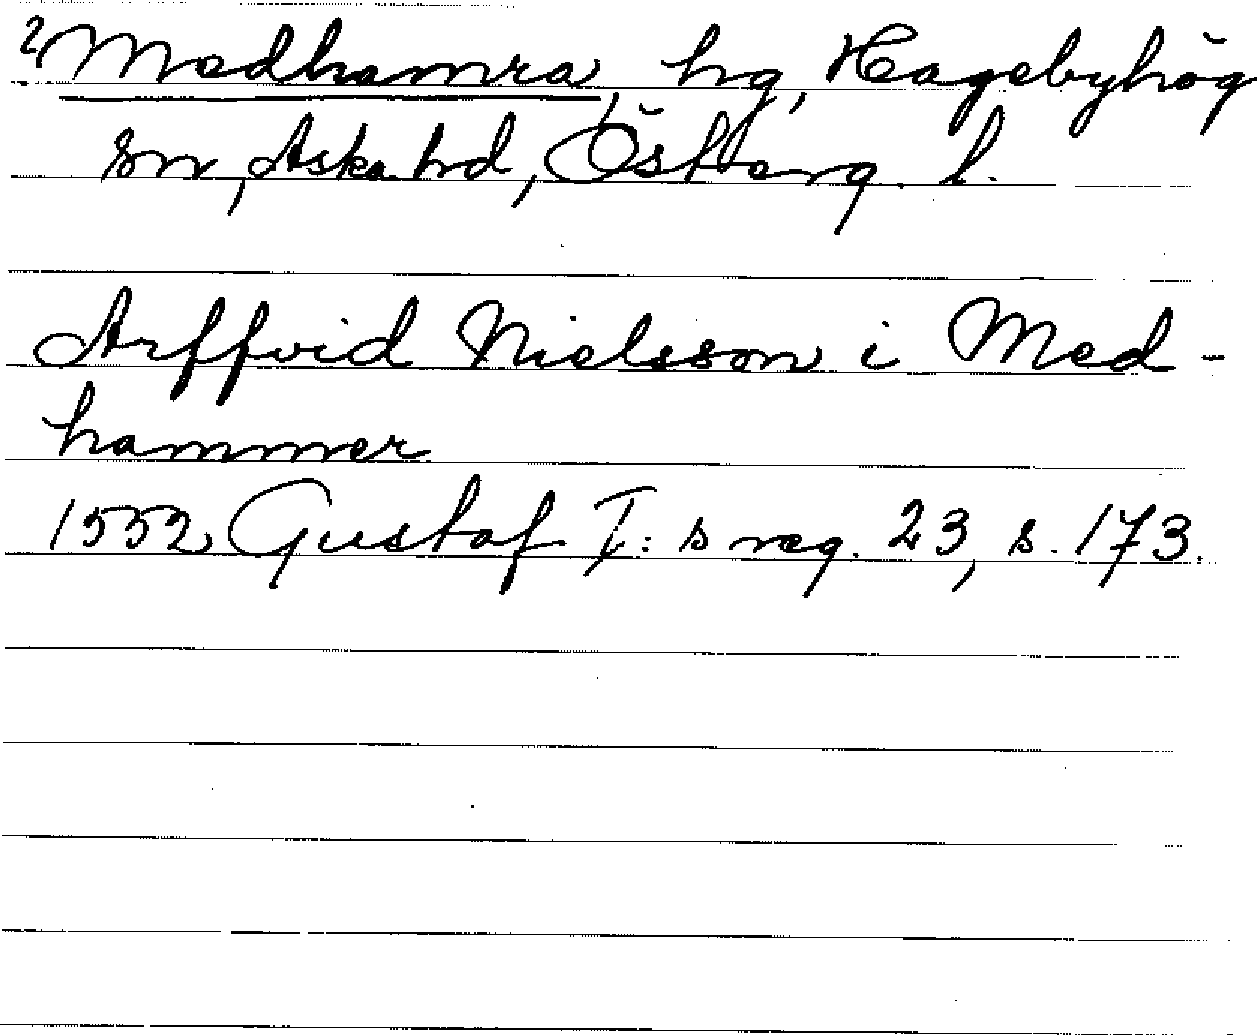 2 Medhamra, hg, Hagebyhög
sn, Aska hd, Österg. l.
Arffvid Nielsson i Med-
hammer
1552 Gustaf I:s reg. 23, s. 173.